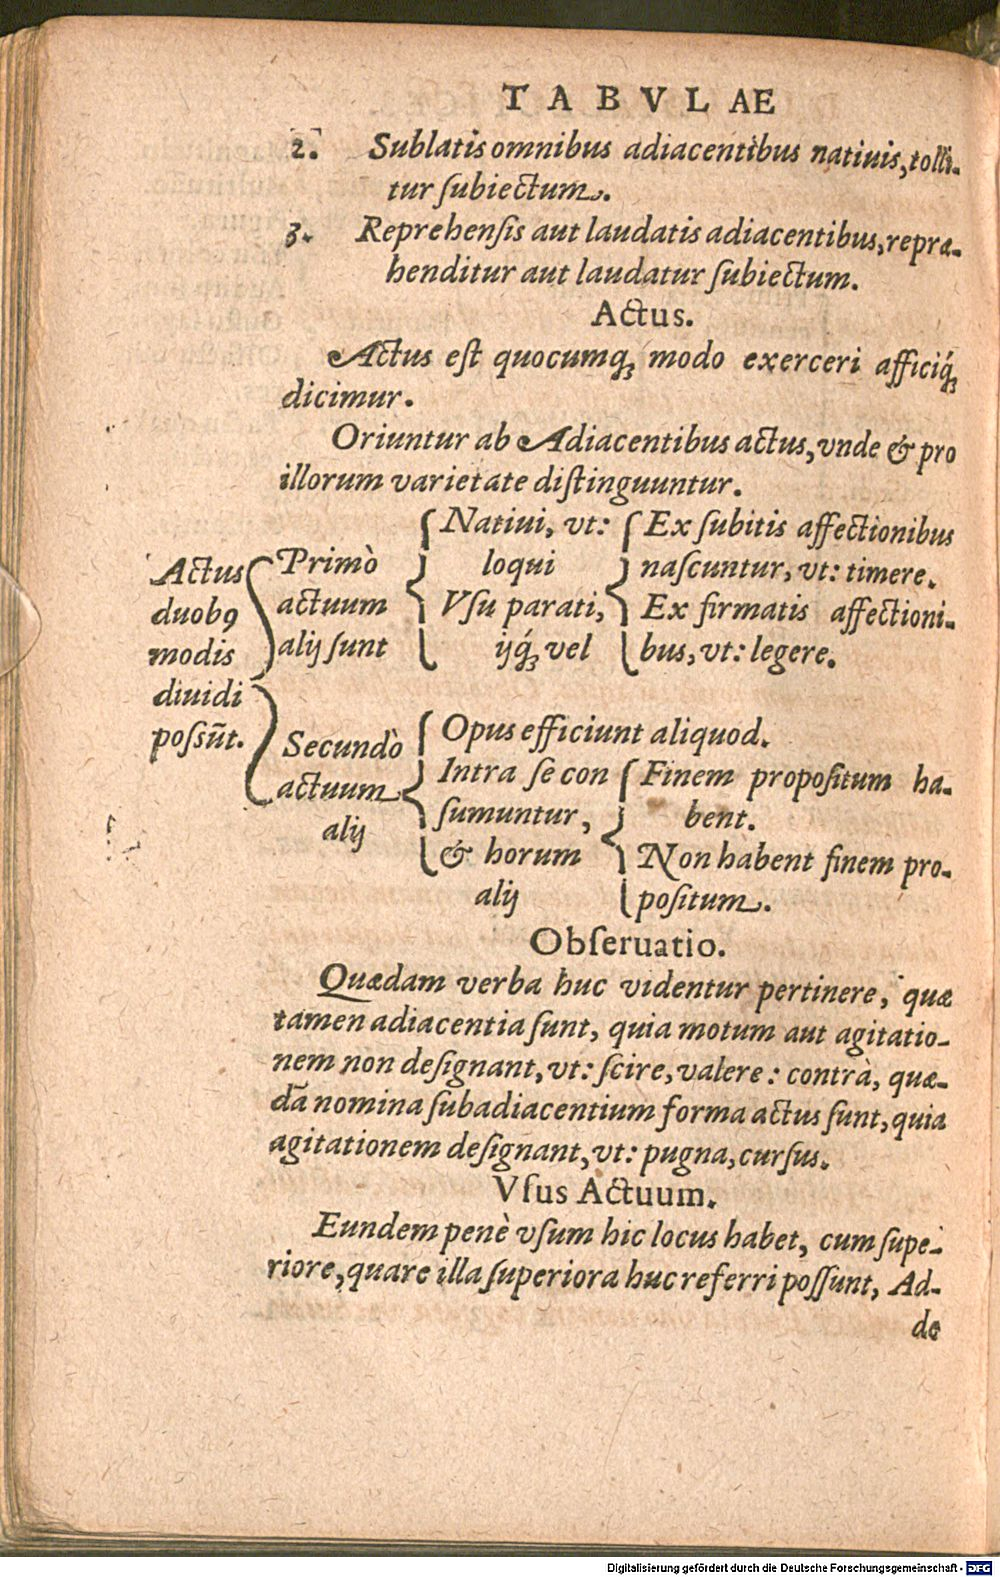 TABVLAE
2. Sublatis omnibus adiacentibus natiuis, tolli-
tur ſubiectum.
3. Reprehenſis aut laudatis adiacentibus, repræ-
henditur aut laudatur ſubiectum.
Actus.
Actus eſt quocumq́ꝫ modo exerceri afficiq́ꝫ
dicimur.
Oriuntur ab Adiacentibus actus, vnde & pro
illorum varietate diſtinguuntur.
Actus
duobꝰ
modis
diuidi
poſsūt.
Primò
actuum
alij ſunt
Natiui, vt:
loqui
Vſu parati,
ijq́ꝫ vel
Ex ſubitis affectionibus
naſcuntur, vt: timere.
Ex firmatis affectioni-
bus, vt: legere.
Secundò
actuum
alij
Opus efficiunt aliquod.
Intra ſe con
ſumuntur,
& horum
alij
Finem propoſitum ha-
bent.
Non habent finem pro-
poſitum.
Obſeruatio.
Quædam verba huc videntur pertinere, quæ
tamen adiacentia ſunt, quia motum aut agitatio-
nem non deſignant, vt: ſcire, valere: contrà, quæ-
dā nomina ſubadiacentium forma actus ſunt, quia
agitationem deſignant, vt: pugna, curſus.
Vſus Actuum.
Eundem penè vſum hic locus habet, cum ſupe-
riore, quare illa ſuperiora huc referri poſſunt, Ad-
de
Digitalisierung gefördert durch die Deutsche Forschungsgemeinschaft - DFG